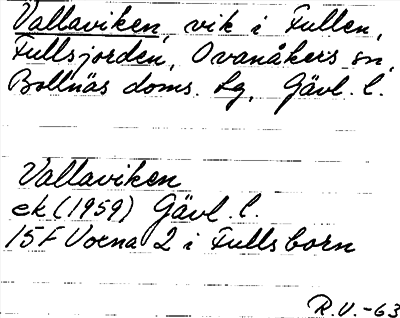 Vallaviken, vik i Fullen,
Fullsjorden, Ovanåkers sn,
Bollnäs doms. lg, Gävl. l.
Vallaviken
ek (1959) Gävl. l.
15F Voxna 2 i Fullsborn
R.V.-63